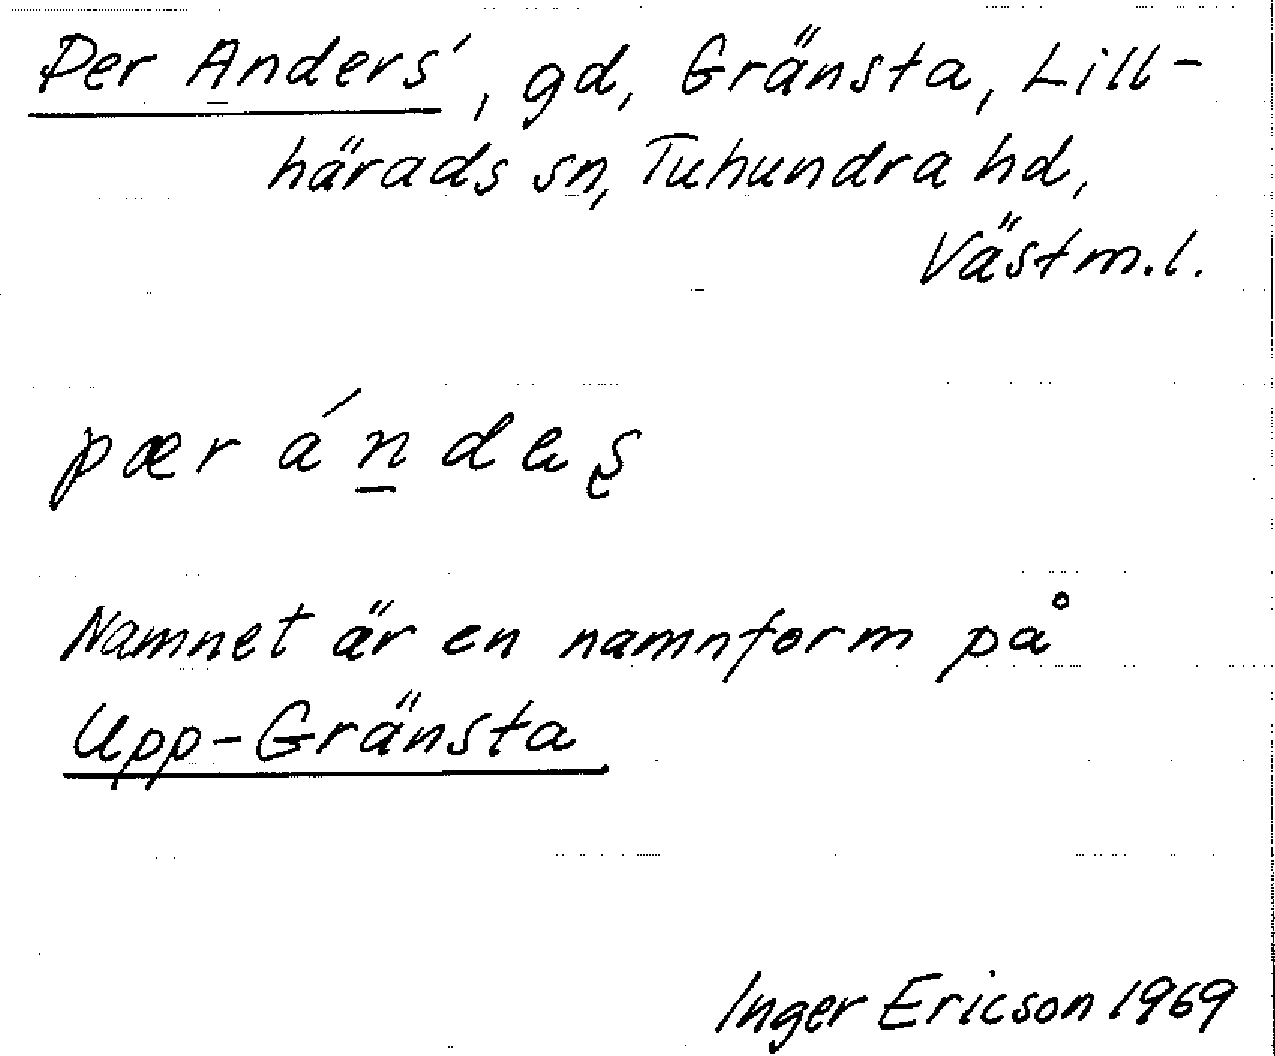 Per Anders', gd, Gränsta, Lill-
härads sn, Tuhundra hd,
Västm.l.
pær ándas̨
Namnet är en namnform på
Upp-Gränsta
Inger Ericson 1969